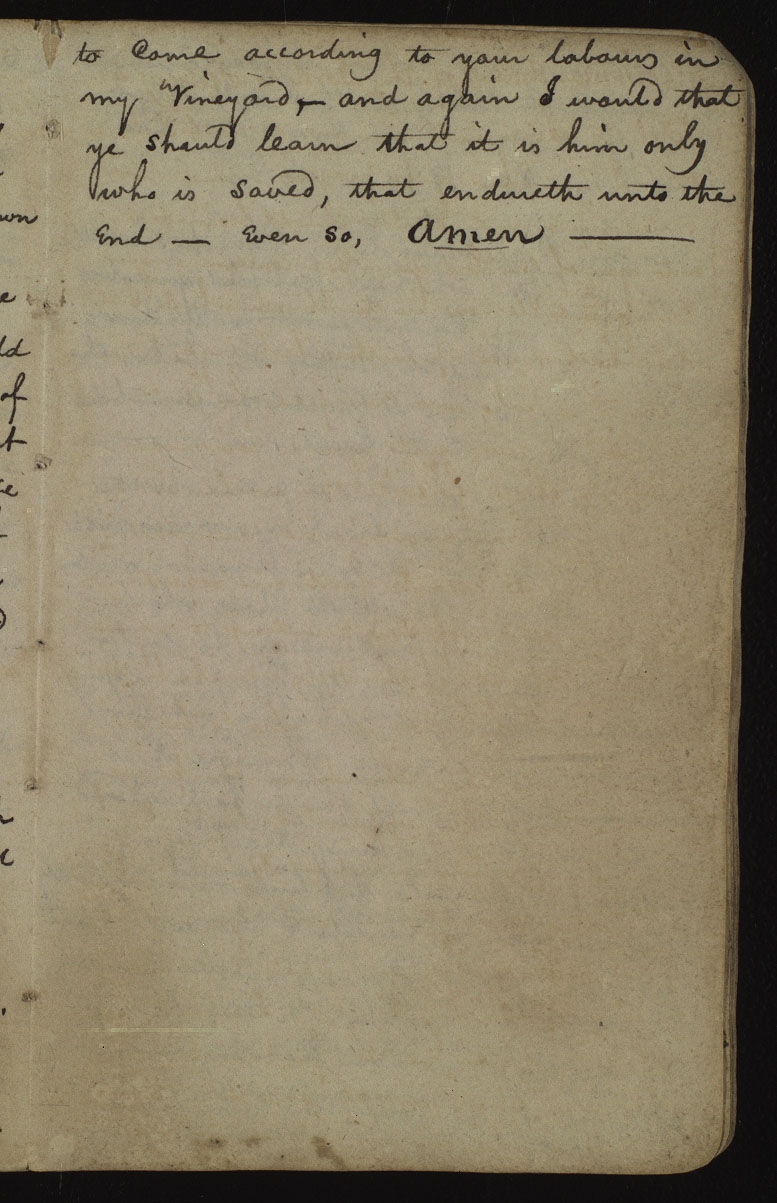 to Come according to your labours in
my Vineyard, — and again I would that
ye should learn that it is him only
who is saved, that endureth unto the
End — Even so, Amen ———